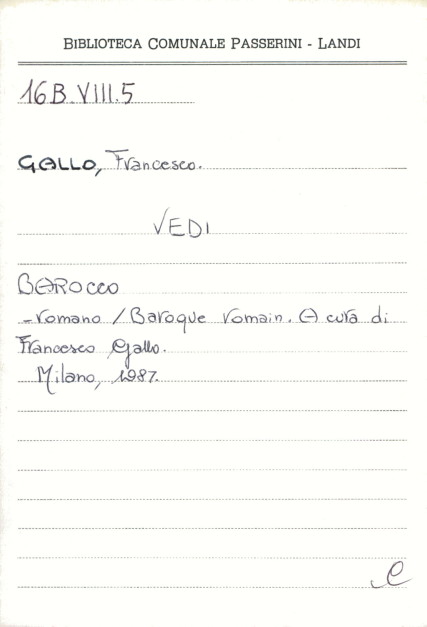 BIBLIOTECA COMUNALE PASSERINI - LANDI
16B.VIII.5
GALLO, Francesco.
VEDI
BAROCCO
-romano / Baroque romain. A cura di
Francesco Gallo.
Milano, 1987.
C